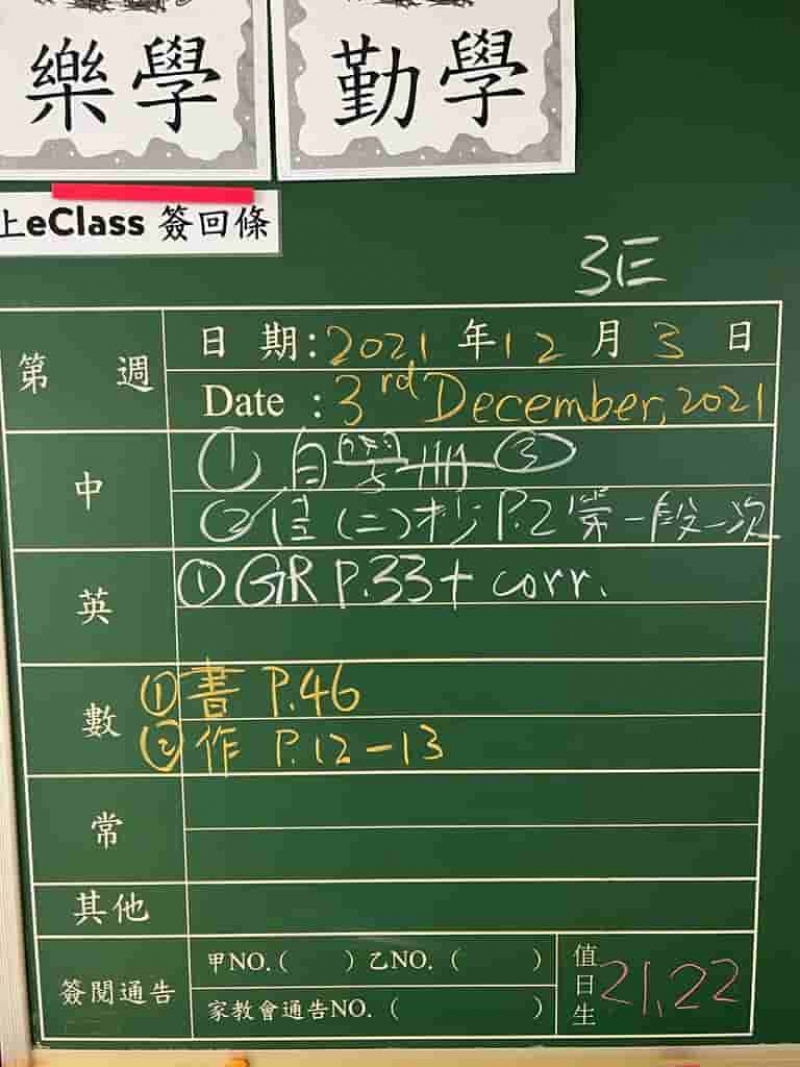 樂學 勤學
上eClass 簽回條
3E
第 週
日 期:2021 年12 月 3 日
Date :3rd December, 2021
中
① 自學冊 ③
② 佳(二)抄 P.2 第一段一次
英
① GR P.33+ corr.
數
① 書 P.46
② 作 P.12-13
常
其他
簽閱通告
甲NO.( ) 乙NO. ( )
家教會通告NO. ( )
值日生 21,22